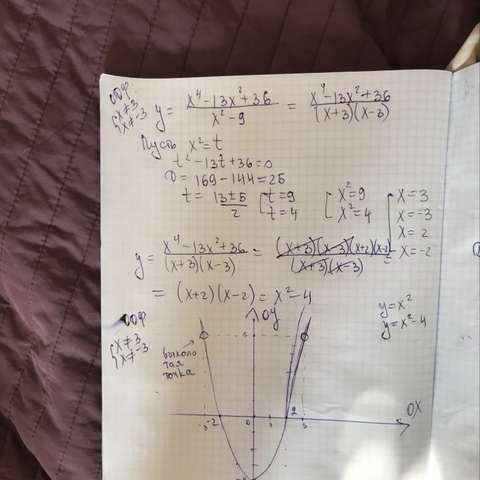 ООФ
{x≠3
x≠-3
y = (x⁴-13x²+36)/(x²-9) = (x⁴-13x²+36)/((x+3)(x-3))
Пусть x²=t
t²-13t+36=0
D = 169-144=25
t = (13±5)/2 [t=9 [x²=9 [x=3
t=4 x²=4 x=-3
x=2
x=-2
y = (x⁴-13x²+36)/((x+3)(x-3)) = ((x+3)(x-3)(x+2)(x-2))/((x+3)(x-3)) =
= (x+2)(x-2) = x²-4
y=x²
y=x²-4
ООФ
{x≠3
x≠-3
выколо
тая
точка
оу
5
-3 -2 0 1 2 3
ОХ
-4